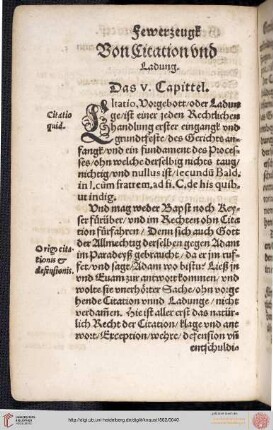 Fewerzeugk
Von Citation vnd
Ladung.
Das v. Capittel.
Citatio
quid.
Citatio, Vorgebott/ oder Ladun
ge/ ist einer jeden Rechtlichen
handlung erster eingangk vnd
grundtfeste/ des Gerichts an-
fangk/ vnd ein fundament des Proces-
ses/ ohn welche derselbig nichts taug/
nichtig/ vnd nullus ist/ secundũ Bald.
in l. cùm fratrem. ad fi. C. de his quib.
ut indig.
Vnd mag weder Bapst noch Key-
ser fürüber/ vnd im Rechten ohn Cita
tion fürfahren/ Denn sich auch Gott
Origo cita-
tionis &
defensionis.
der Allmechtig derselben gegen Adam
im Paradeyß gebraucht/ da er jm ruf-
fet/ vnd sagt/ Adam wo bistu? Ließ jn
vnd Euam zur antwort kommen/ vnd
wolte sie vnerhörter Sache/ ohn vorge
hende Citation vnnd Ladunge/ nicht
verdamen. Hie ist aller erst das natür-
lich Recht der Citation/ klage vnd ant
wort/ Exception/ wehre/ defension vñ
entschuldi-
http://digi.ub.uni-heidelberg.de/diglit/
UNIVERSITÄTS-
BIBLIOTHEK
HEIDELBERG